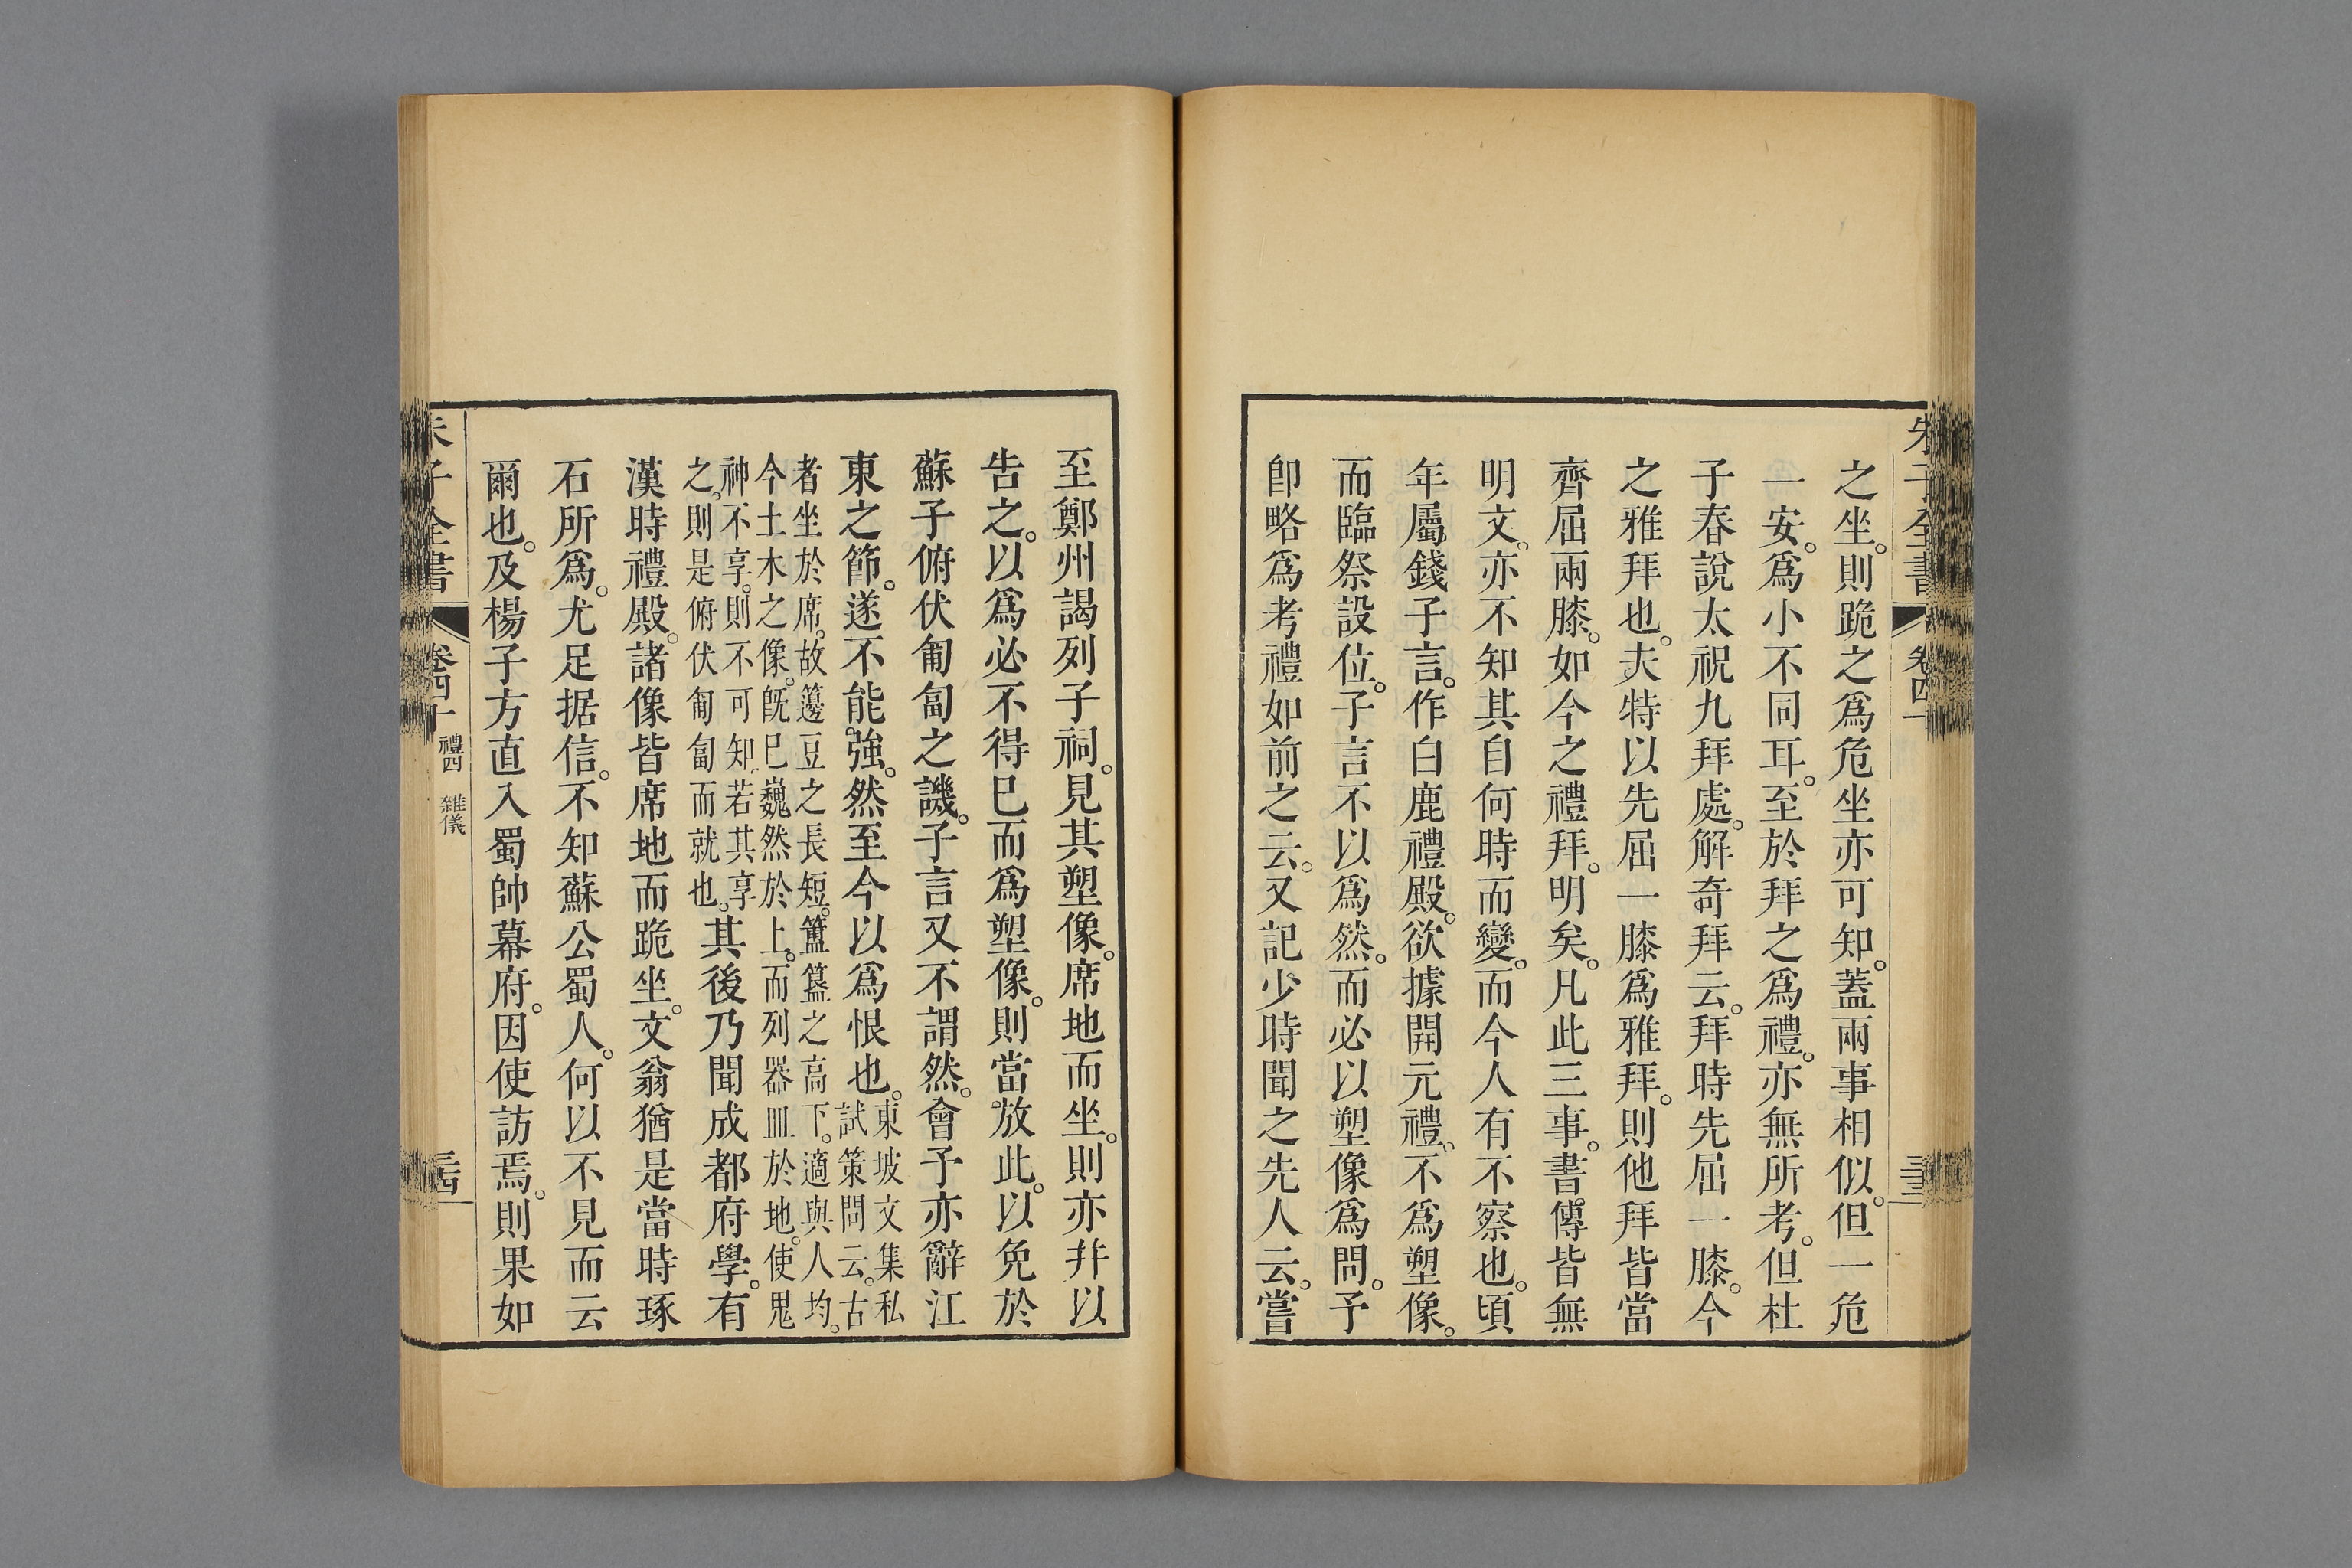 之坐。則跪之爲危坐亦可知。蓋兩事相似。但一危
一安。爲小不同耳。至於拜之爲禮。亦無所考。但杜
子春說太祝九拜處。解奇拜云。拜時先屈一膝。今
之雅拜也。夫特以先屈一膝爲雅拜。則他拜皆當
齊屈兩膝。如今之禮拜。明矣。凡此三事。書傳皆無
明文。亦不知其自何時而變。而今人有不察也。頃
年屬錢子言。作白鹿禮殿。欲據開元禮。不爲塑像。
而臨祭設位。子言不以爲然。而必以塑像爲問。予
卽略爲考禮如前之云。又記少時聞之先人云。嘗
至鄭州謁列子祠。見其塑像。席地而坐。則亦幷以
告之。以爲必不得已而爲塑像。則當放此。以免於
蘇子俯伏匍匐之譏。子言又不謂然。會予亦辭江
東之節。遂不能強。然至今以爲恨也。東坡文集私
試策問云。古
者坐於席。故籩豆之長短。簠簋之高下。適與人均。
今土木之像。旣已巍然於上。而列器皿於地。使鬼
神不享。則不可知。若其享
之。則是俯伏匍匐而就也。其後乃聞成都府學。有
漢時禮殿。諸像皆席地而跪坐。文翁猶是當時琢
石所爲。尤足据信。不知蘇公蜀人。何以不見而云
爾也。及楊子方直入蜀帥幕府。因使訪焉。則果如
子全書
卷四十
禮四
雜儀